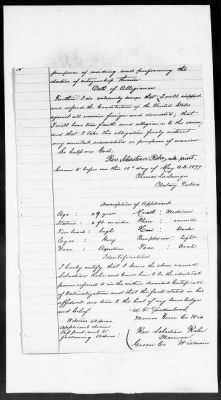 purpose of residing and performing the
duties of citizenship therein.
Oath of Allegiance
Further, I do solemnly swear that I will support
and defend the Constitution of the United States
against all enemies foreign and domestic; that
I will bear true faith and allegiance to the same;
and that I take this obligation freely without
any mental reservation or purpose of evasion:
So help me God.
Sworn to before me this day of A.D. 1897
Notary Public
Description of Applicant
Age: 49 years
Mouth: Medium
Stature: Chin: round
Forehead: high
Hair: black
Eyes: Grey
Complexion: light
Nose: Aquiline
Face: Oval
Identification
I hereby certify that I know the above named
and know him to be the identical
person referred to in the within described Certificate
of Naturalization and that the facts stated in his
affidavit are true to the best of my knowledge
and belief.
Monroe Green Co Wis
Applicant desires
Passport sent to
following address:
Monroe
Green Co Wisconsin